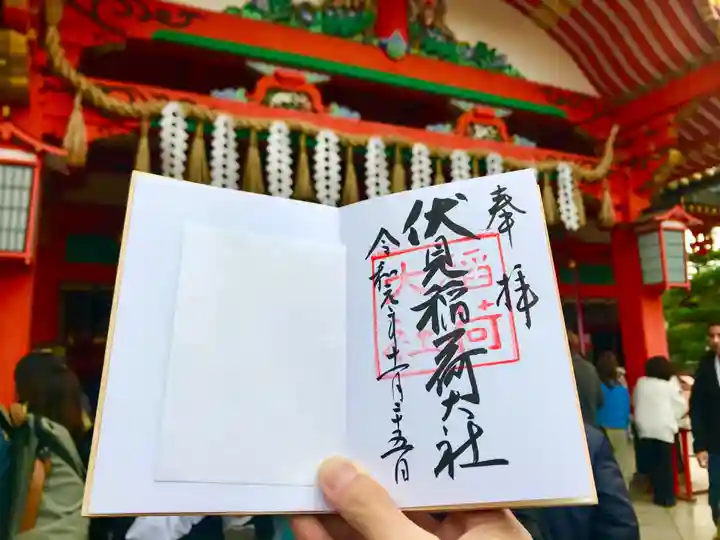 奉拝
伏見稲荷大社
令和元年十一月二十五日
稲荷
大社